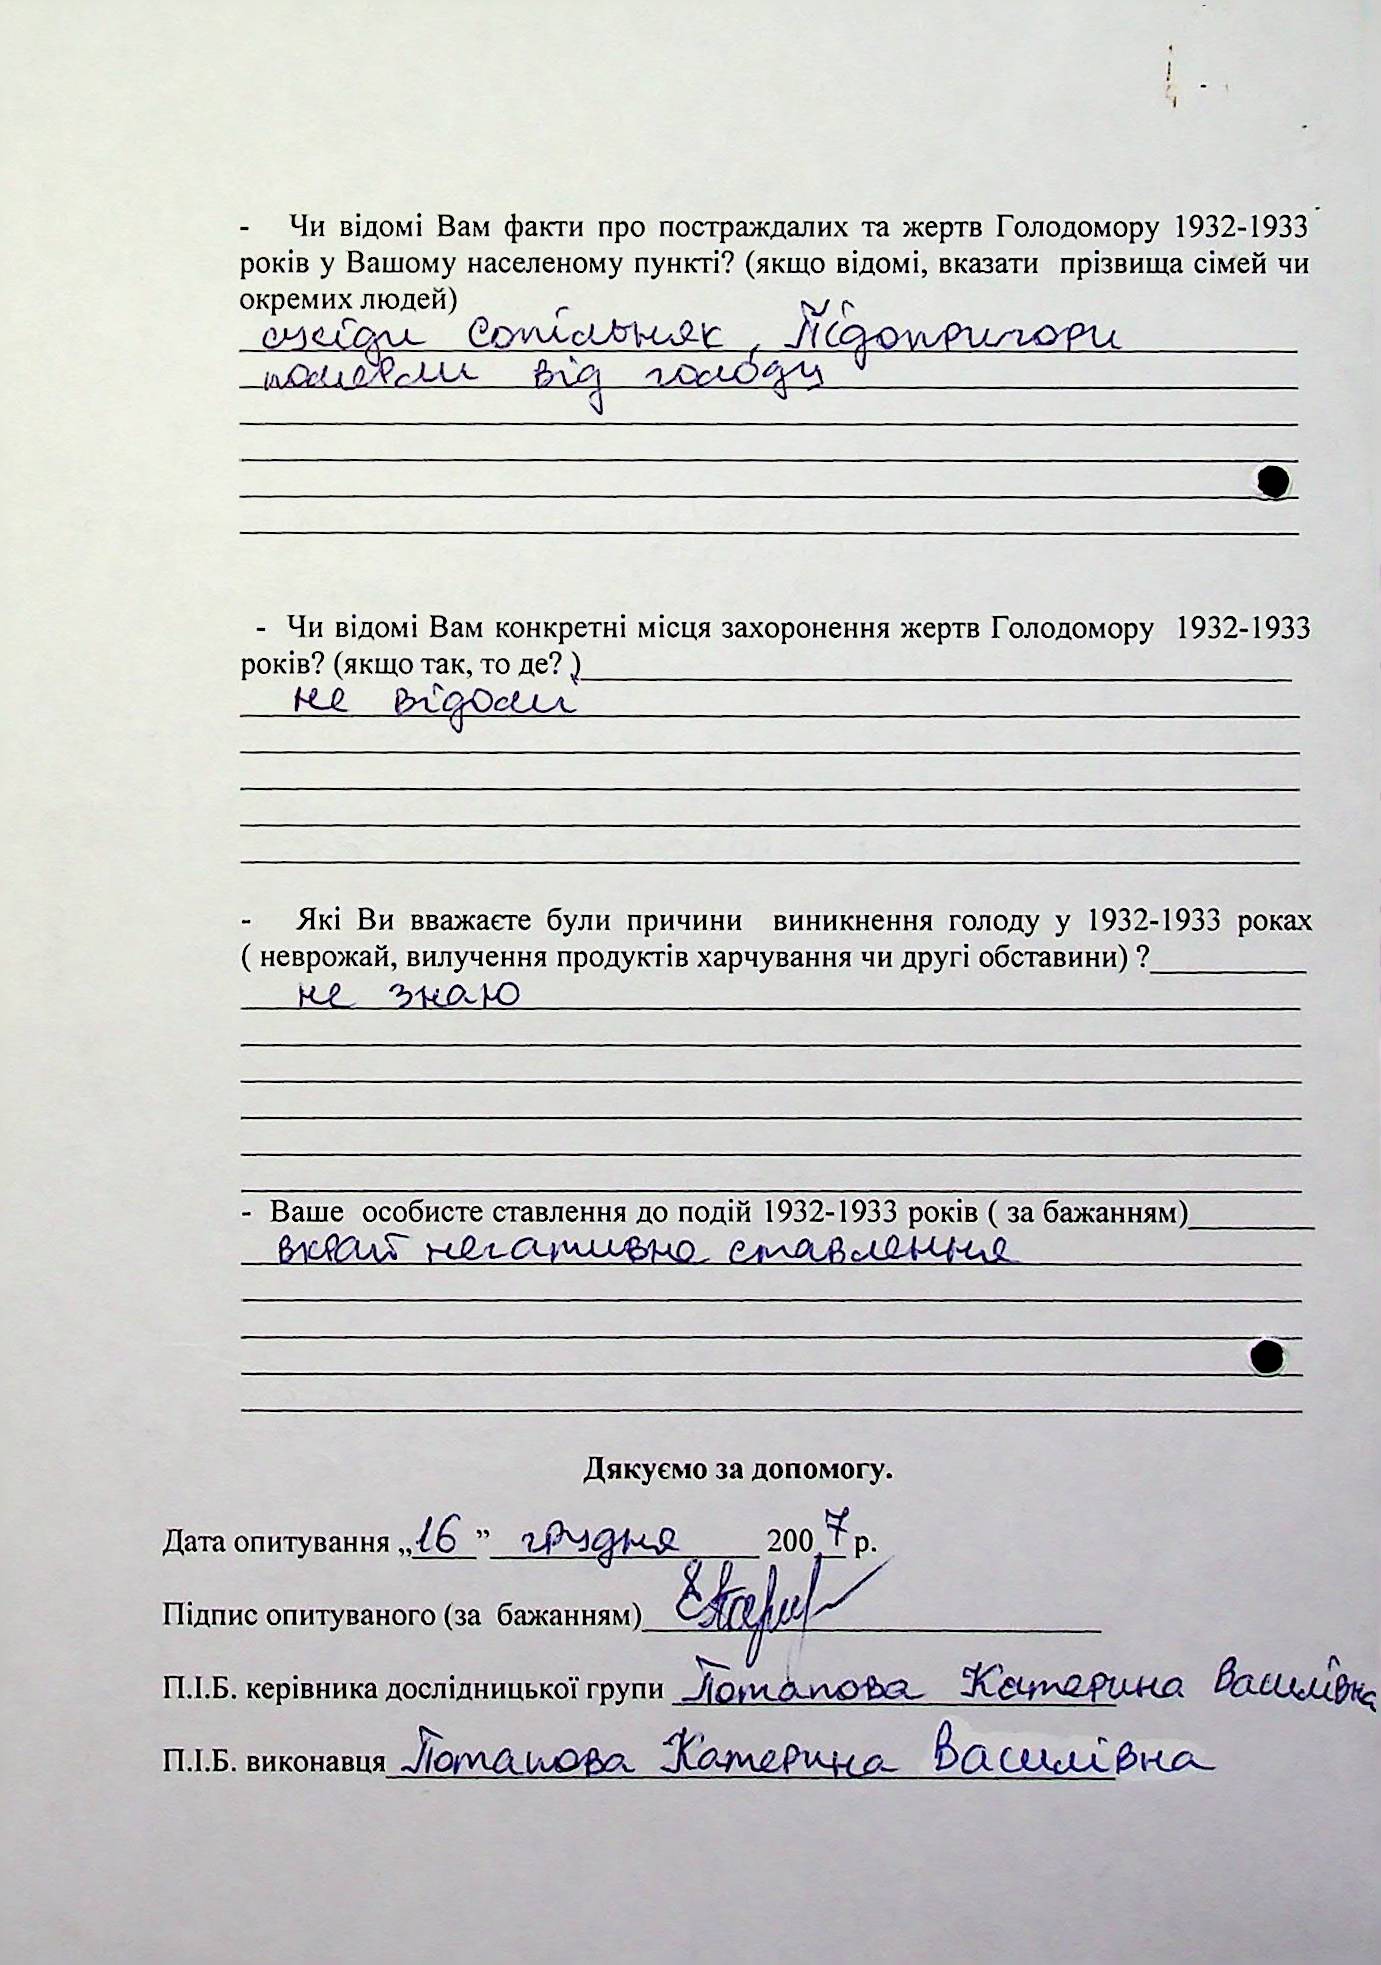 - Чи відомі Вам факти про постраждалих та жертв Голодомору 1932-1933
років у Вашому населеному пункті? (якщо відомі, вказати прізвища сімей чи
окремих людей)
сусіди Сопільняк, Підопригори
померли від голоду
- Чи відомі Вам конкретні місця захоронення жертв Голодомору 1932-1933
років? (якщо так, то де? )
не відомі
- Які Ви вважаєте були причини виникнення голоду у 1932-1933 роках
( неврожай, вилучення продуктів харчування чи другі обставини) ?
не знаю
- Ваше особисте ставлення до подій 1932-1933 років ( за бажанням)
вкрай негативне ставлення
Дякуємо за допомогу.
Дата опитування „16” грудня 2007 р.
Підпис опитуваного (за бажанням)
П.І.Б. керівника дослідницької групи Потапова Катерина Василівна
П.І.Б. виконавця Потапова Катерина Василівна